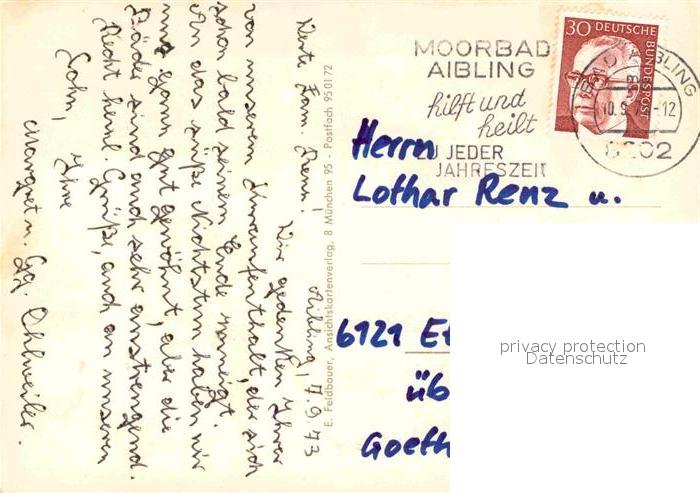 Aibling, 7.9.73
Werte Fam. Renz!
Wir gedenken Ihrer
von unserem Kuraufenthalt, der sich
schon bald seinem Ende zuneigt.
An das süße Nichtstun haben wir
uns ganz gut gewöhnt, aber die
Bäder sind auch sehr anstrengend.
Recht herzl. Grüße, auch an unseren
Sohn, Ihre
Margret u. Gg. Ohlweiler.
E. Feldbauer, Ansichtskartenverlag, 8 München 95 - Postfach 950172
MOORBAD
AIBLING
hilft und
heilt
ZU JEDER
JAHRESZEIT
30 DEUTSCHE
BUNDESPOST
BAD AIBLING
10.9. -12
8202
Herrn
Lothar Renz u.
6121
üb
Goeth
privacy protection
Datenschutz